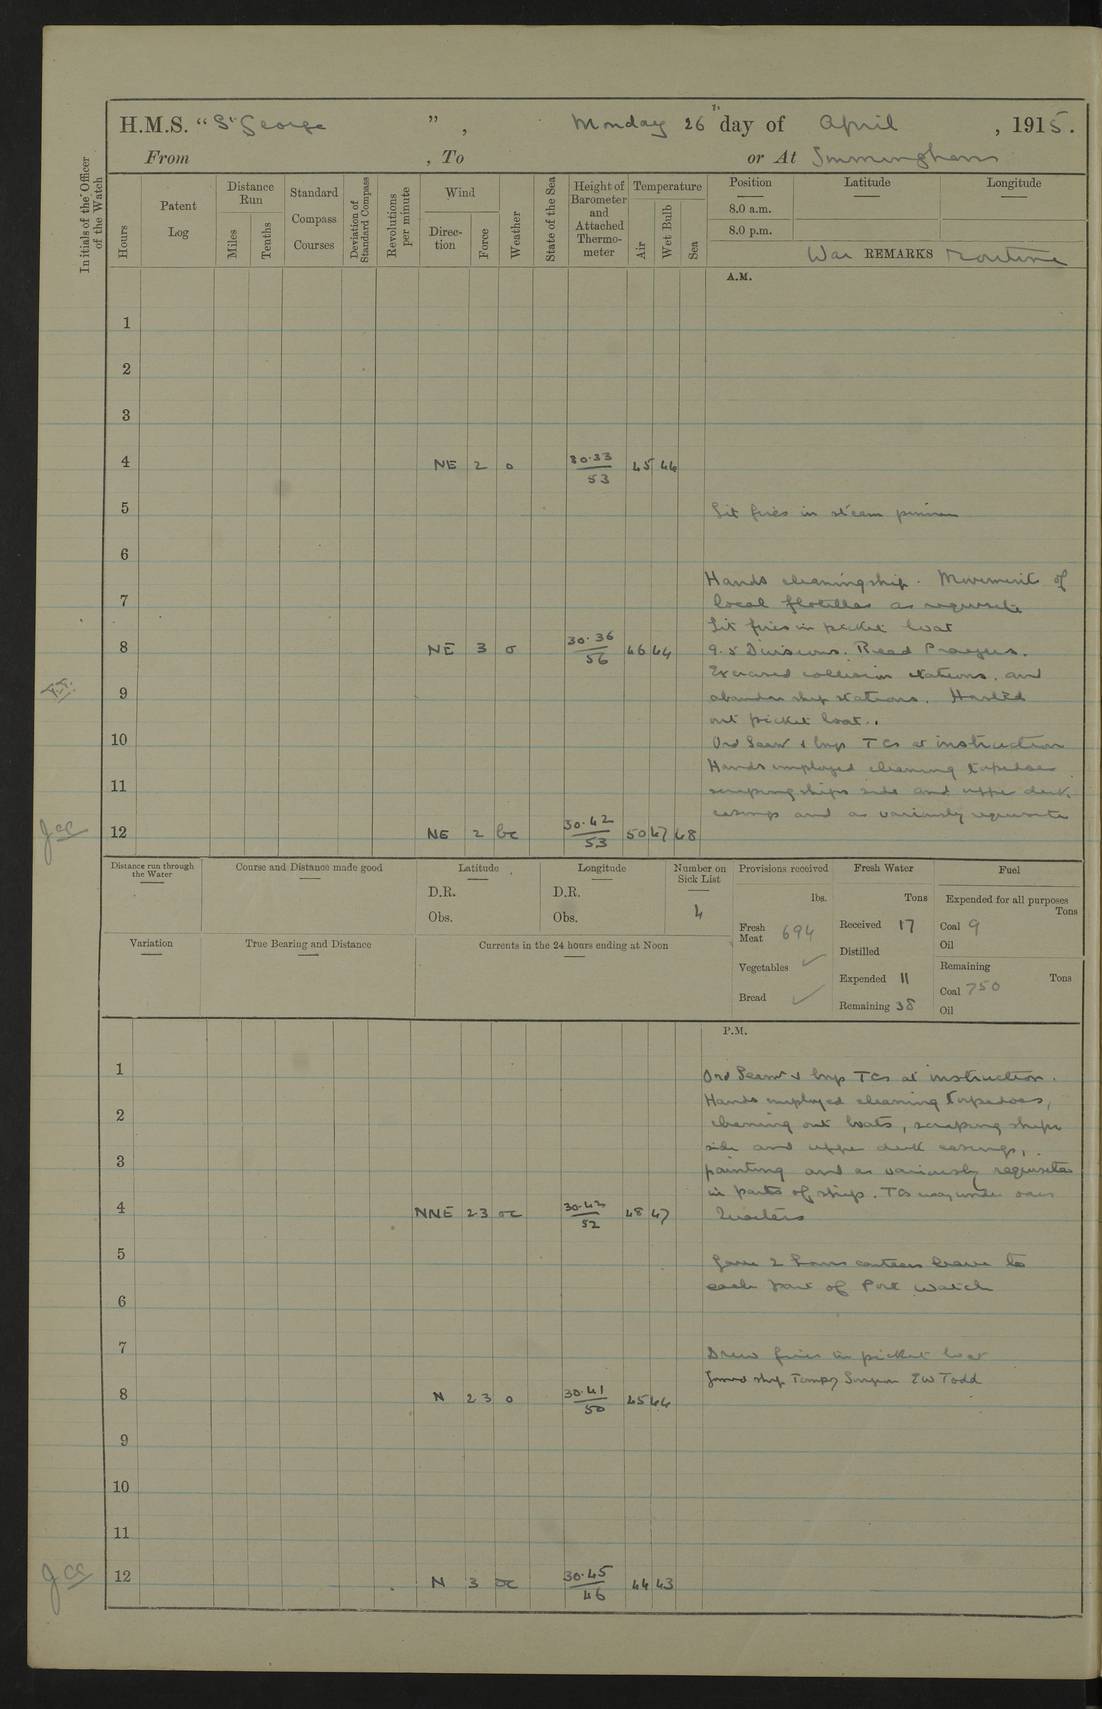 H.M.S. "St George", Monday 26th day of April, 1915.
From , To or At Immingham
Initials of the Officer of the Watch
Hours
Patent Log
Distance Run
Miles
Tenths
Standard Compass Courses
Deviation of Standard Compass
Revolutions per minute
Wind
Direction
Force
Weather
State of the Sea
Height of Barometer and Attached Thermometer
Temperature
Air
Wet Bulb
Sea
Position
Latitude
Longitude
8.0 a.m.
8.0 p.m.
War REMARKS Routine
A.M.
1
2
3
4 NE 2 o 30.33 53 45 44
5 Lit fires in steam pinnace
6
Hands cleaning ship. Movements of
7 local flotillas as requisite
Lit fires in picket boat
8 NE 3 o 30.36 56 46 44 9.5 Divisions. Read Prayers.
Exercised collision stations, and
9 abandon ship stations. Hoisted
out picket boat..
10 Ord Seamn & boys TCs at instruction
Hands employed cleaning torpedoes
11 scraping ships side and upper deck
casings and as variously requisite
jcc 12 NE 2 bc 30.42 53 50 47 48
Distance run through the Water
Course and Distance made good
Latitude
D.R.
Obs.
Longitude
D.R.
Obs.
Number on Sick List
4
Provisions received
lbs.
Fresh Meat 694
Vegetables ✓
Bread ✓
Fresh Water
Tons
Received 17
Distilled
Expended 11
Remaining 38
Fuel
Expended for all purposes
Tons
Coal 9
Oil
Remaining
Tons
Coal 750
Oil
Variation
True Bearing and Distance
Currents in the 24 hours ending at Noon
P.M.
1 Ord Seamn & boys TCs at instruction.
Hands employed cleaning torpedoes,
2 cleaning out boats, scraping ships
side and upper deck casings,
3 painting and as variously requisite
in parts of ship. TCs away under oars
4 NNE 2-3 oc 30.42 52 48 47 Quarters
5 Gave 2 hours canteen leave to
each part of Port Watch
6
7 Drew fires in picket boat
Joined ship Tempy Surgeon EW Todd
8 N 2 3 o 30.41 50 45 44
9
10
11
jcc 12 N 3 oc 30.45 46 44 43